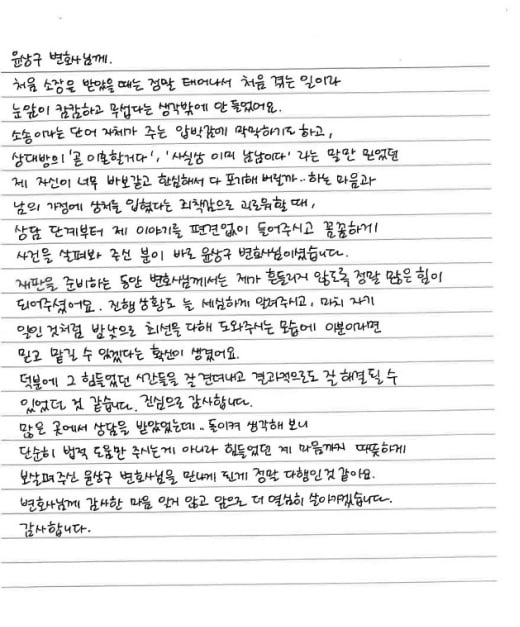 윤상구 변호사님께.
처음 소장을 받았을 때는 정말 태어나서 처음 겪는 일이라
눈앞이 캄캄하고 무섭다는 생각밖에 안 들었어요.
소송이라는 단어 자체가 주는 압박감에 막막하기도 하고,
상대방의 '곧 이혼할거다', '사실상 이미 남남이다' 라는 말만 믿었던
제 자신이 너무 바보같고 한심해서 다 포기해 버릴까.. 하는 마음과
남의 가정에 상처를 입혔다는 죄책감으로 괴로워할 때,
상담 단계부터 제 이야기를 편견없이 들어주시고 꼼꼼하게
사건을 살펴봐 주신 분이 바로 윤상구 변호사님이셨습니다.
재판을 준비하는 동안 변호사님께서는 제가 흔들리지 않도록 정말 많은 힘이
되어주셨어요. 진행상황도 늘 세심하게 알려주시고, 마치 자기
일인 것처럼 밤낮으로 최선을 다해 도와주시는 모습에 이분이라면
믿고 맡길 수 있겠다는 확신이 생겼어요.
덕분에 그 힘들었던 시간들을 잘 견뎌내고 결과적으로도 잘 해결될 수
있었던 것 같습니다. 진심으로 감사합니다.
많은 곳에서 상담을 받았었는데.. 돌이켜 생각해 보니
단순히 법적 도움만 주시는게 아니라 힘들었던 제 마음까지 따뜻하게
보살펴주신 윤상구 변호사님을 만나게 된게 정말 다행인것 같아요.
변호사님께 감사한 마음 잊지 않고 앞으로 더 열심히 살아가겠습니다.
감사합니다.